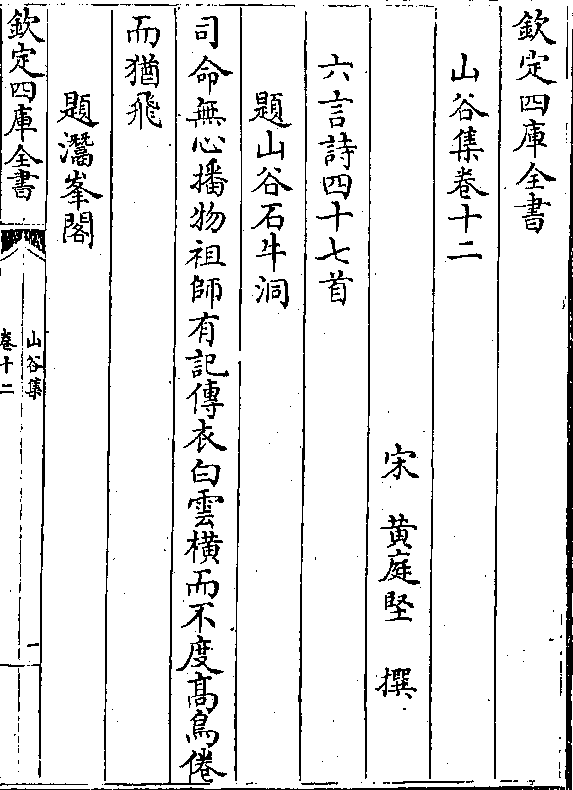 欽定四庫全書
山谷集卷十二
宋 黄庭堅 撰
六言詩四十七首
題山谷石牛洞
司命無心播物祖師有記傳衣白雲横而不度髙鳥倦
而猶飛
題灊峯閣
欽定四庫全書
山谷集
卷十二
一